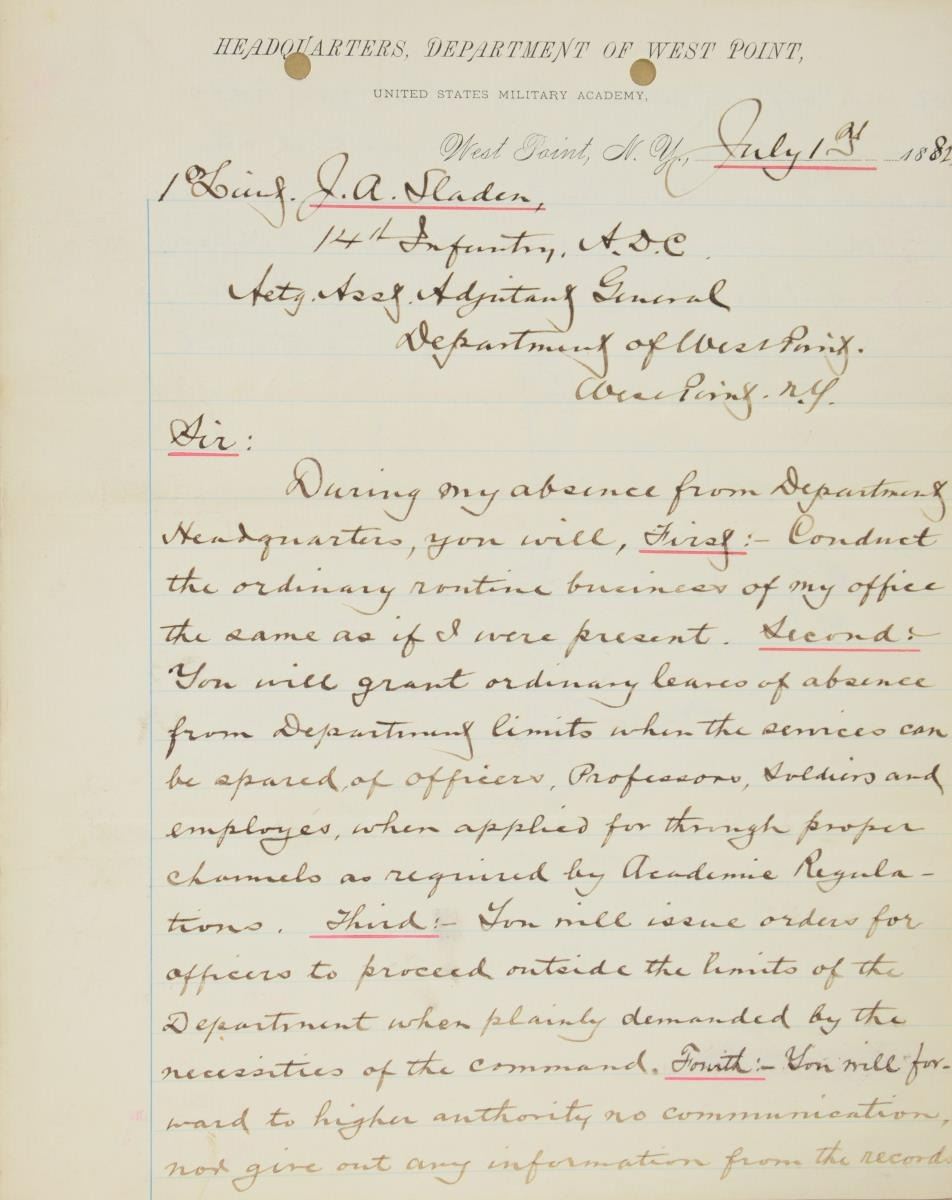 HEADQUARTERS, DEPARTMENT OF WEST POINT,
UNITED STATES MILITARY ACADEMY,
West Point, N. Y., July 1st 1882
1st Lieut. J. A. Sladen,
14th Infantry, A. D. C.
Actg. Asst. Adjutant General
Department of West Point.
West Point. N.Y.
Sir:
During my absence from Department
Headquarters, you will, First:- Conduct
the ordinary routine business of my office
the same as if I were present. Second:-
You will grant ordinary leaves of absence
from Department limits when the services can
be spared, of officers, Professors, Soldiers and
employes, when applied for through proper
channels as required by Academic Regula-
tions. Third:- You will issue orders for
officers to proceed outside the limits of the
Department when plainly demanded by the
necessities of the command. Fourth:- You will for-
ward to higher authority no communication,
nor give out any information from the records